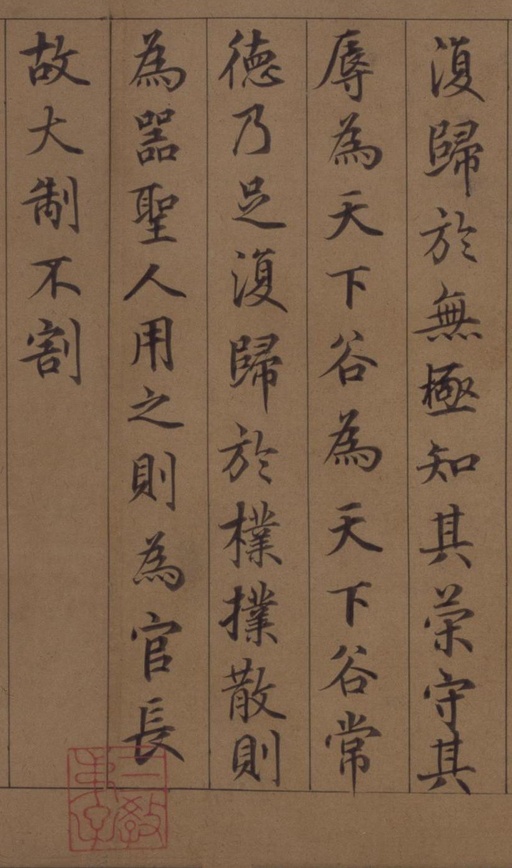 復歸於無極知其榮守其
辱為天下谷為天下谷常
德乃足復歸於樸樸散則
為器聖人用之則為官長
故大制不割